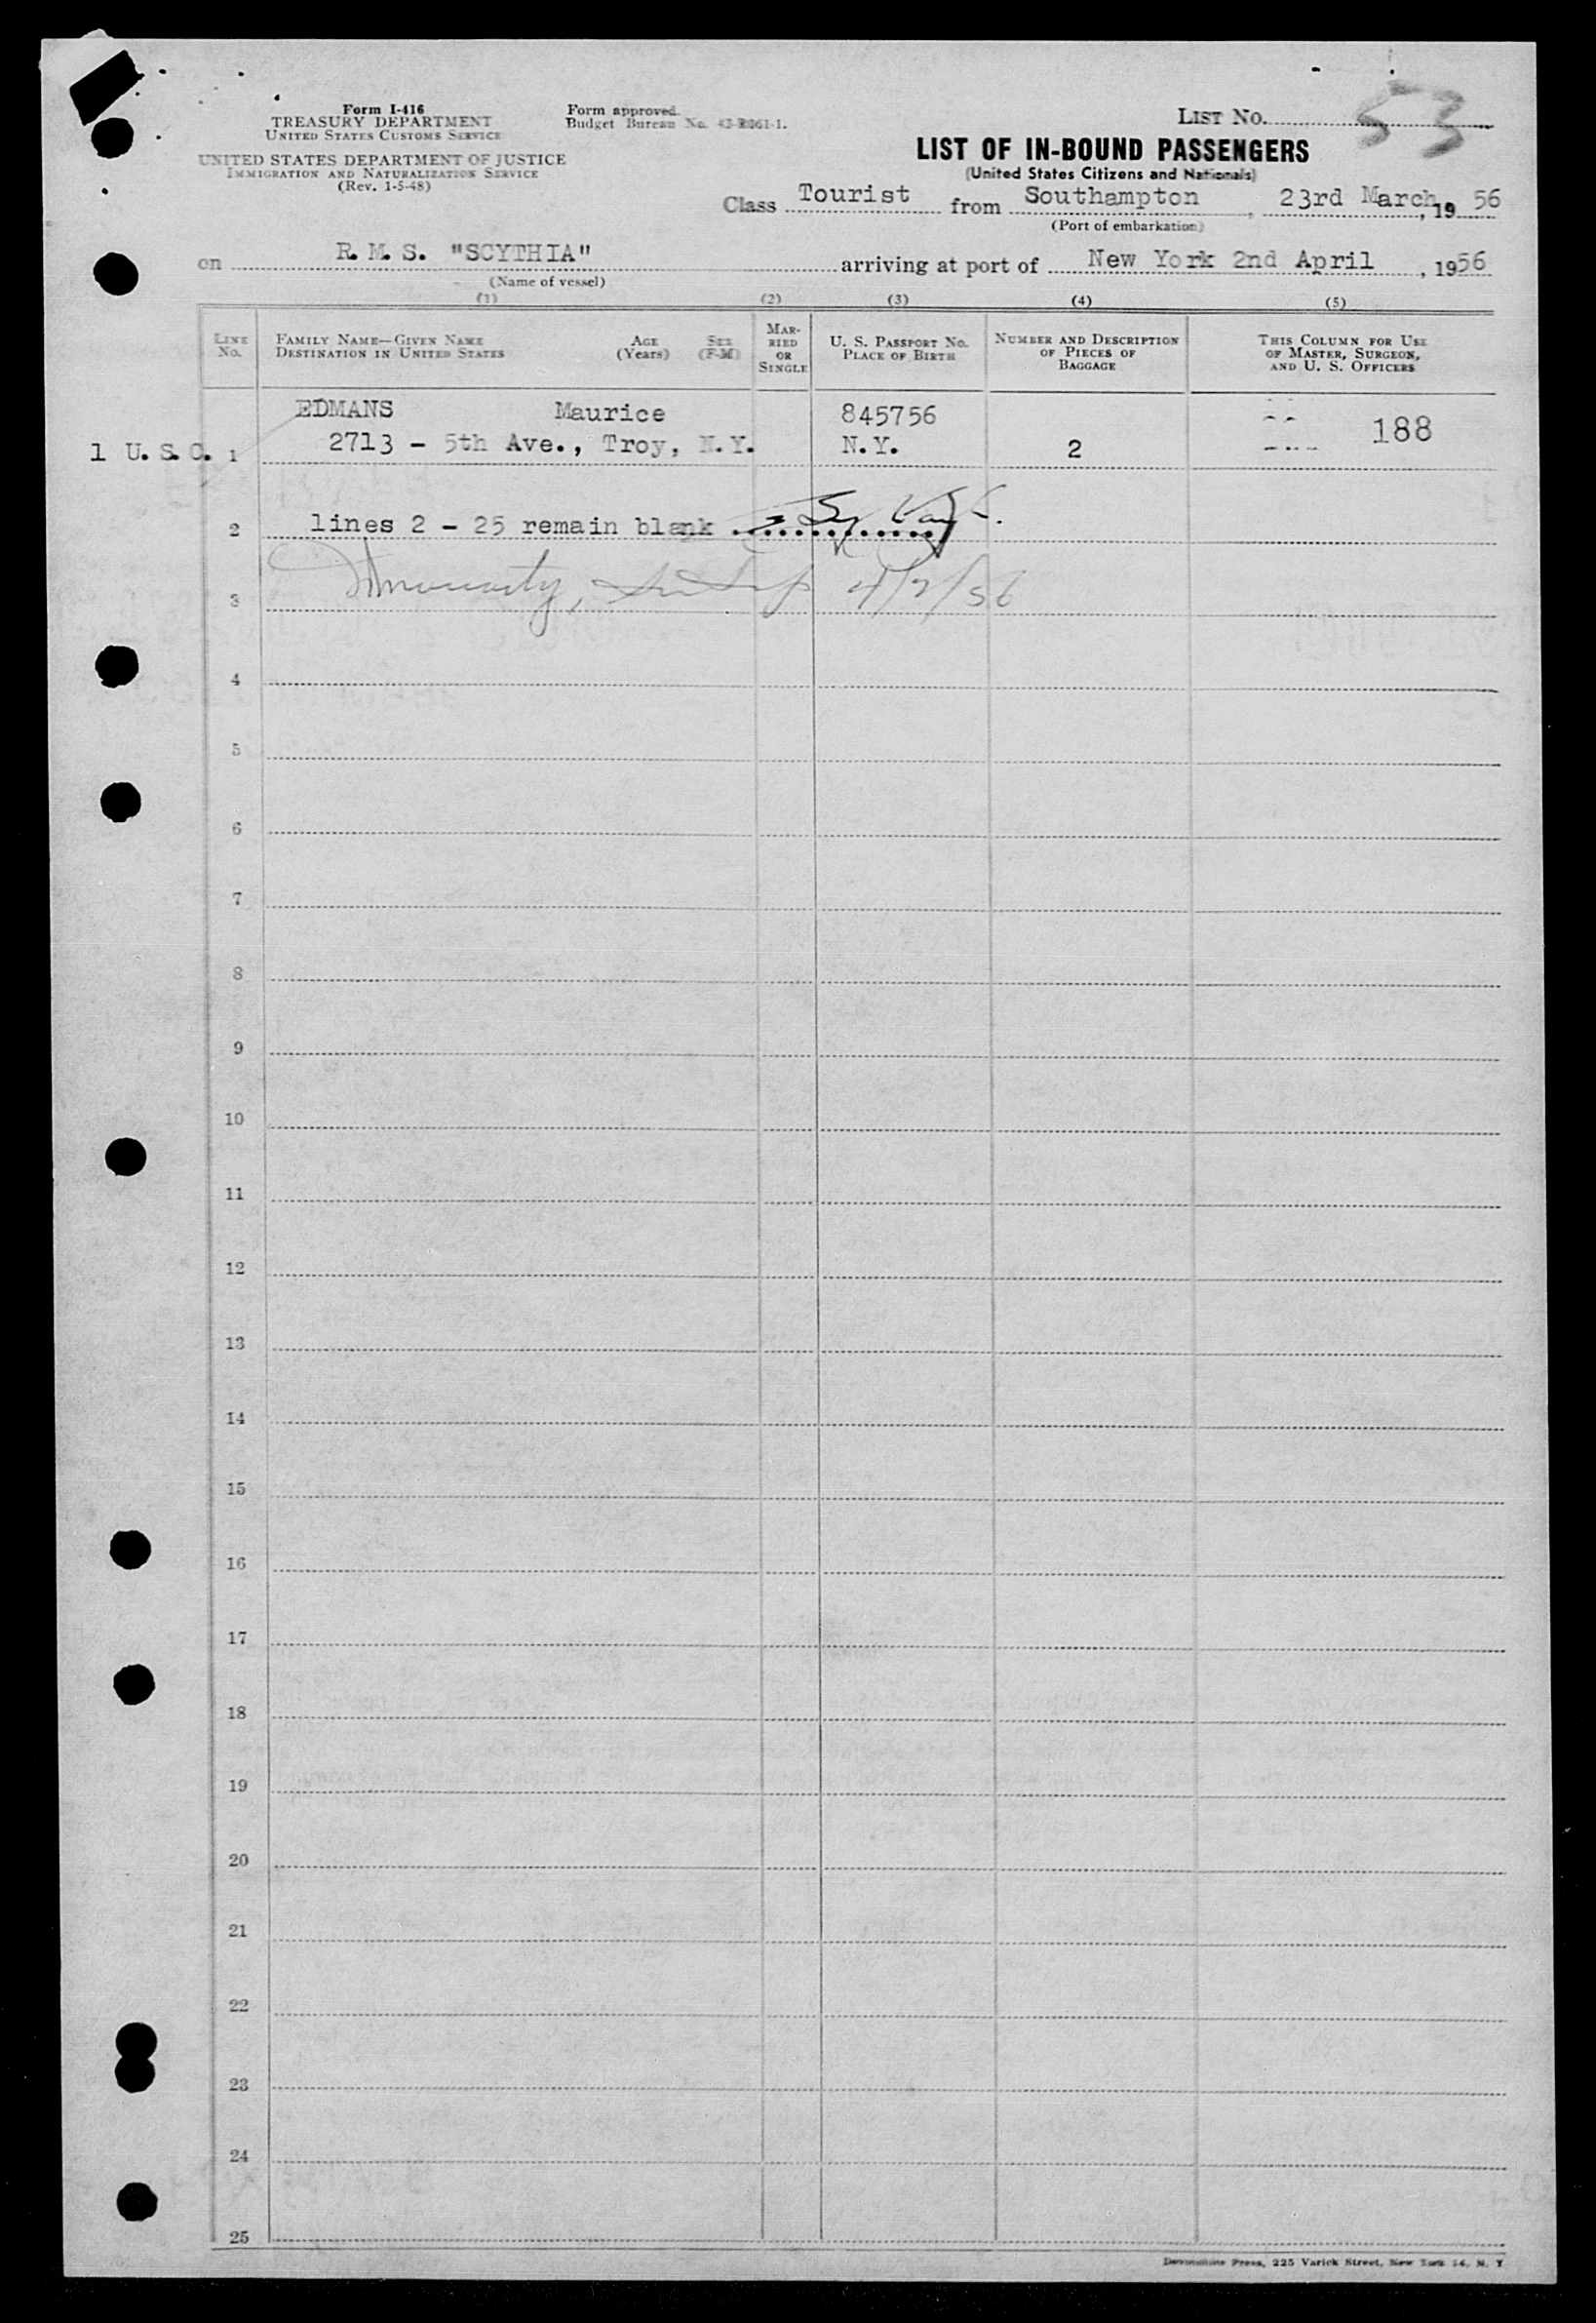 Form I-416
TREASURY DEPARTMENT
UNITED STATES CUSTOMS SERVICE
UNITED STATES DEPARTMENT OF JUSTICE
IMMIGRATION AND NATURALIZATION SERVICE
(Rev. 1-5-48)
Form approved.
Budget Bureau No. 43-R061-1.
LIST No. 53
LIST OF IN-BOUND PASSENGERS
(United States Citizens and Nationals)
Class Tourist from Southampton, 23rd March, 1956
(Port of embarkation)
on R. M. S. "SCYTHIA" arriving at port of New York 2nd April, 1956
(Name of vessel)
(1) (2) (3) (4) (5)
LINE No.
FAMILY NAME—GIVEN NAME
DESTINATION IN UNITED STATES
AGE (Years)
SEX (F-M)
MARRIED OR SINGLE
U. S. PASSPORT No.
PLACE OF BIRTH
NUMBER AND DESCRIPTION OF PIECES OF BAGGAGE
THIS COLUMN FOR USE OF MASTER, SURGEON, AND U. S. OFFICERS
EDMANS Maurice 845756 188
1 U. S. C. 1 2713 - 5th Ave., Troy, N.Y. N.Y. 2
2 lines 2 - 25 remain blank ..............
3 4/2/56
4
5
6
7
8
9
10
11
12
13
14
15
16
17
18
19
20
21
22
23
24
25
Devonshire Press, 225 Varick Street, New York 14, N. Y.